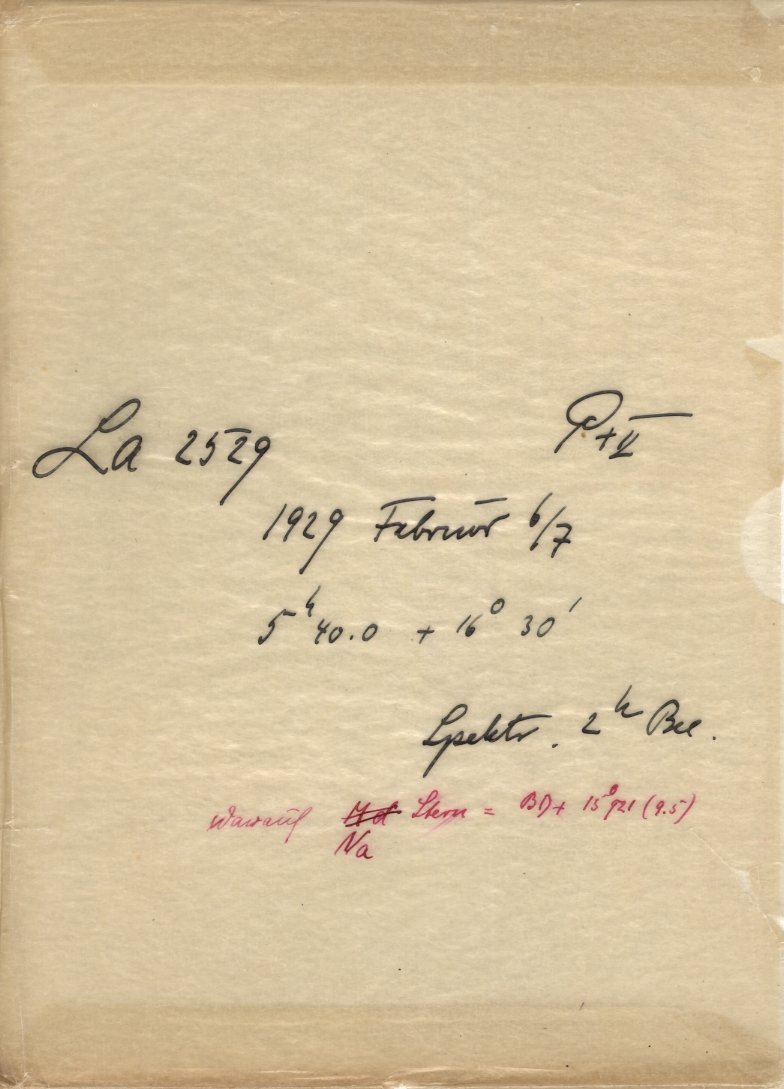 La 2529 P+V
1929 Februar 6/7
5ʰ 40.0 + 16⁰ 30′
Spektr. 2ʰ Bel.
worauf Stern = BD+ 15⁰921 (9.5)
Na